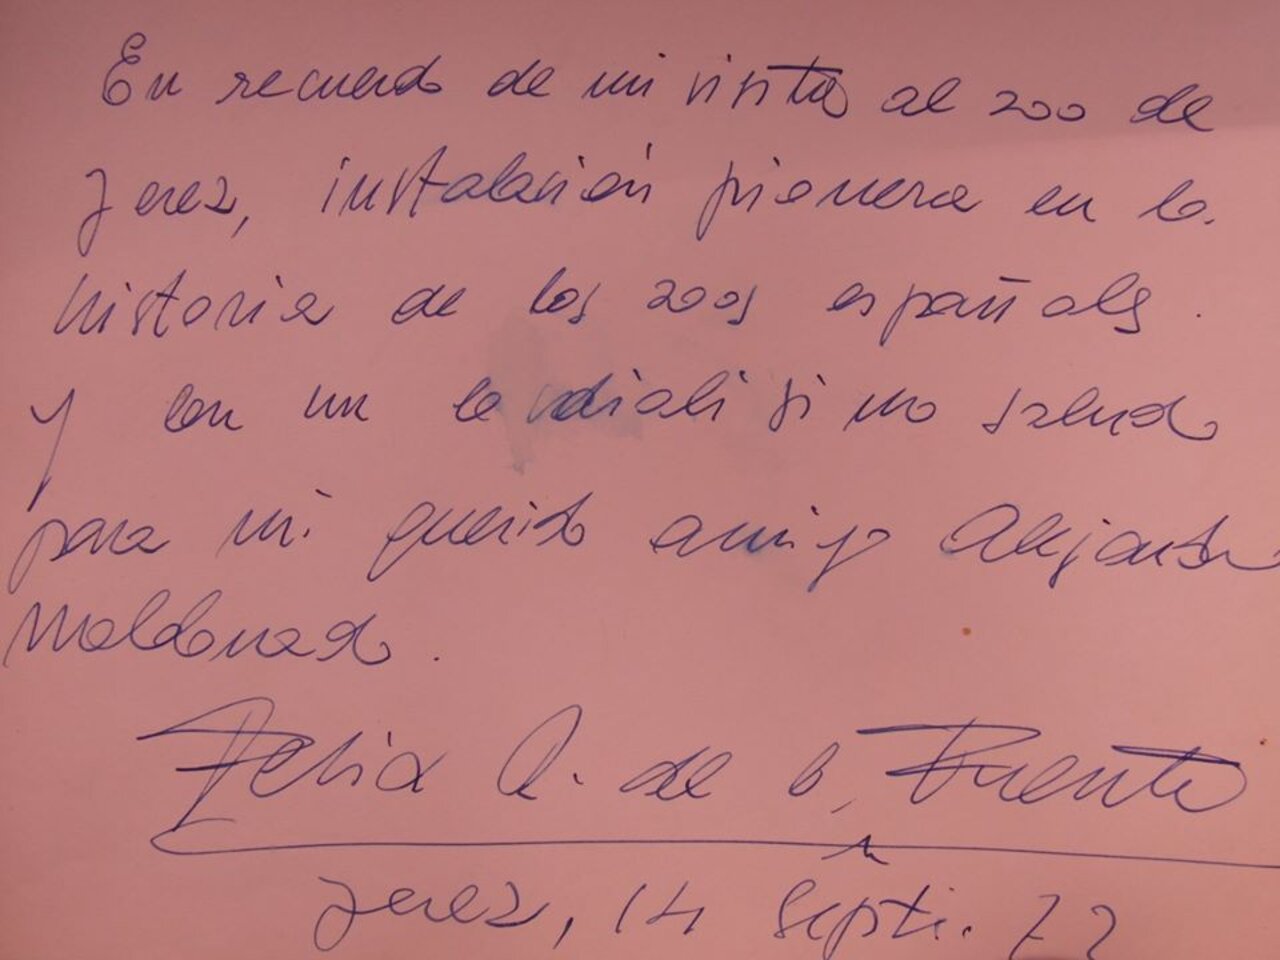 En recuerdo de mi visita al zoo de
Jerez, instalación pionera en la
historia de los zoos españoles.
y con un cordialisimo saludo
para mi querido amigo Alejandro
Maldonado.
Felix R. de la Fuente
Jerez, 14 Septi. 72